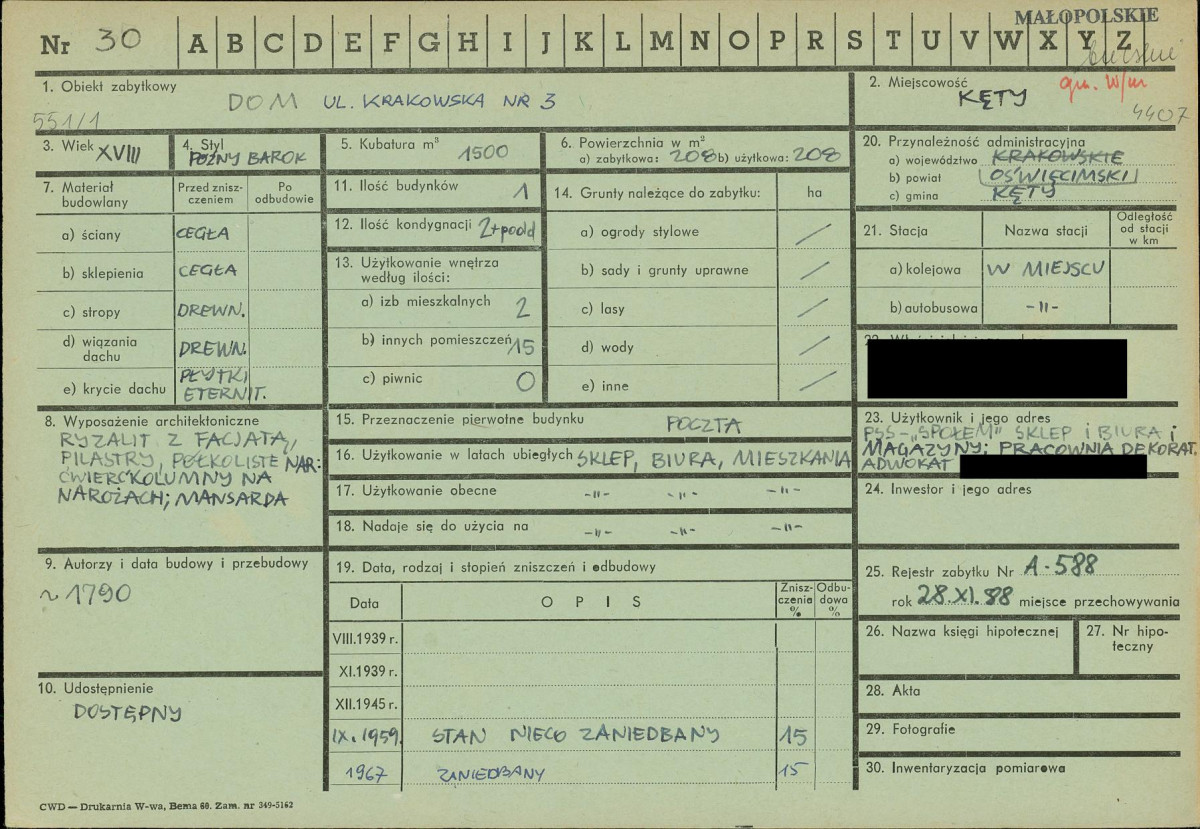 MAŁOPOLSKIE
Nr 30 A B C D E F G H I J K L M N O P R S T U V W X Y Z
bielskie
1. Obiekt zabytkowy
DOM UL. KRAKOWSKA NR 3
551/1
2. Miejscowość
gm. W/m
KĘTY
4407
3. Wiek XVIII
4. Styl
PÓŹNY BAROK
5. Kubatura m³ 1500
6. Powierzchnia w m²
a) zabytkowa: 208 b) użytkowa: 208
20. Przynależność administracyjna
a) województwo KRAKOWSKIE
b) powiat OŚWIĘCIMSKI
c) gmina KĘTY
7. Materiał budowlany
Przed zniszczeniem
Po odbudowie
a) ściany CEGŁA
b) sklepienia CEGŁA
c) stropy DREWN.
d) wiązania dachu DREWN.
e) krycie dachu PŁYTKI ETERNIT.
11. Ilość budynków 1
12. Ilość kondygnacji 2+podd
13. Użytkowanie wnętrza
według ilości:
a) izb mieszkalnych 2
b) innych pomieszczeń 15
c) piwnic 0
14. Grunty należące do zabytku: ha
a) ogrody stylowe /
b) sady i grunty uprawne /
c) lasy /
d) wody /
e) inne /
21. Stacja
Nazwa stacji
Odległość od stacji w km
a) kolejowa W MIEJSCU
b) autobusowa -"-
8. Wyposażenie architektoniczne
RYZALIT Z FACJATĄ,
PILASTRY, PÓŁKOLISTE NAR:
ĆWIERĆKOLUMNY NA
NAROŻACH; MANSARDA
15. Przeznaczenie pierwotne budynku POCZTA
16. Użytkowanie w latach ubiegłych SKLEP, BIURA, MIESZKANIA
17. Użytkowanie obecne -"- -"- -"-
18. Nadaje się do użycia na -"- -"- -"-
23. Użytkownik i jego adres
PSS-„SPOŁEM" SKLEP I BIURA i
MAGAZYNY; PRACOWNIA DEKORAT.
ADWOKAT
24. Inwestor i jego adres
9. Autorzy i data budowy i przebudowy
~ 1790
10. Udostępnienie
DOSTĘPNY
19. Data, rodzaj i stopień zniszczeń i odbudowy
Data OPIS Zniszczenia % Odbudowa %
VIII.1939 r.
XI.1939 r.
XII.1945 r.
IX.1959. STAN NIECO ZANIEDBANY 15
1967 ZANIEDBANY 15
25. Rejestr zabytku Nr A-588
rok 28.XI.88 miejsce przechowywania
26. Nazwa księgi hipotecznej
27. Nr hipoteczny
28. Akta
29. Fotografie
30. Inwentaryzacja pomiarowa
CWD — Drukarnia W-wa, Bema 60. Zam. nr 349-5162